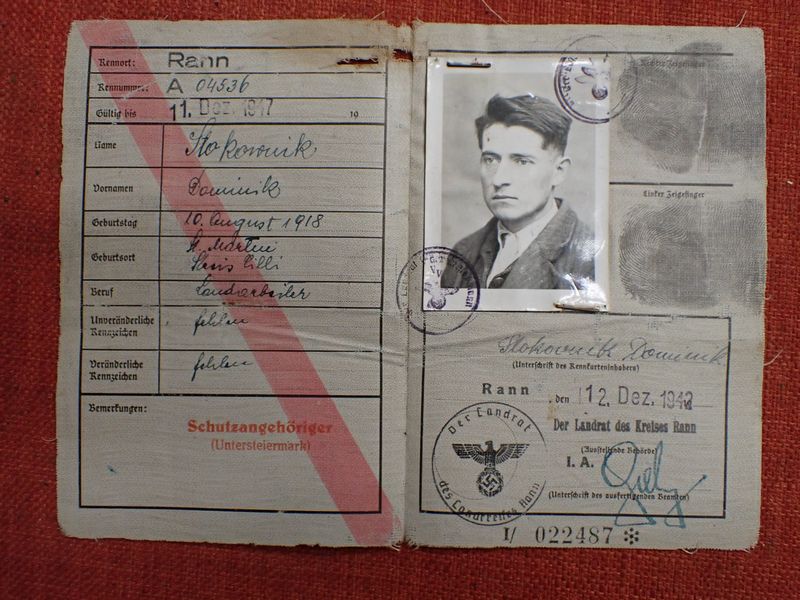 Kennort: Rann
Kennummer: A 04536
Gültig bis 11. Dez. 1947 19
Name Stokovnik
Vornamen Dominik
Geburtstag 10. August 1918
Geburtsort St. Martin
Kreis Cilli
Beruf Landarbeiter
Unveränderliche Kennzeichen fehlen
Veränderliche Kennzeichen fehlen
Bemerkungen:
Schutzangehöriger
(Untersteiermark)
Rechter Zeigefinger
Linker Zeigefinger
Stokovnik Dominik
(Unterschrift des Kennkarteninhabers)
Rann, den 12. Dez. 1942
Der Landrat des Kreises Rann
(Ausstellende Behörde)
I. A.
(Unterschrift des ausfertigenden Beamten)
Der Landrat
des Landkreises Rann
I/ 022487